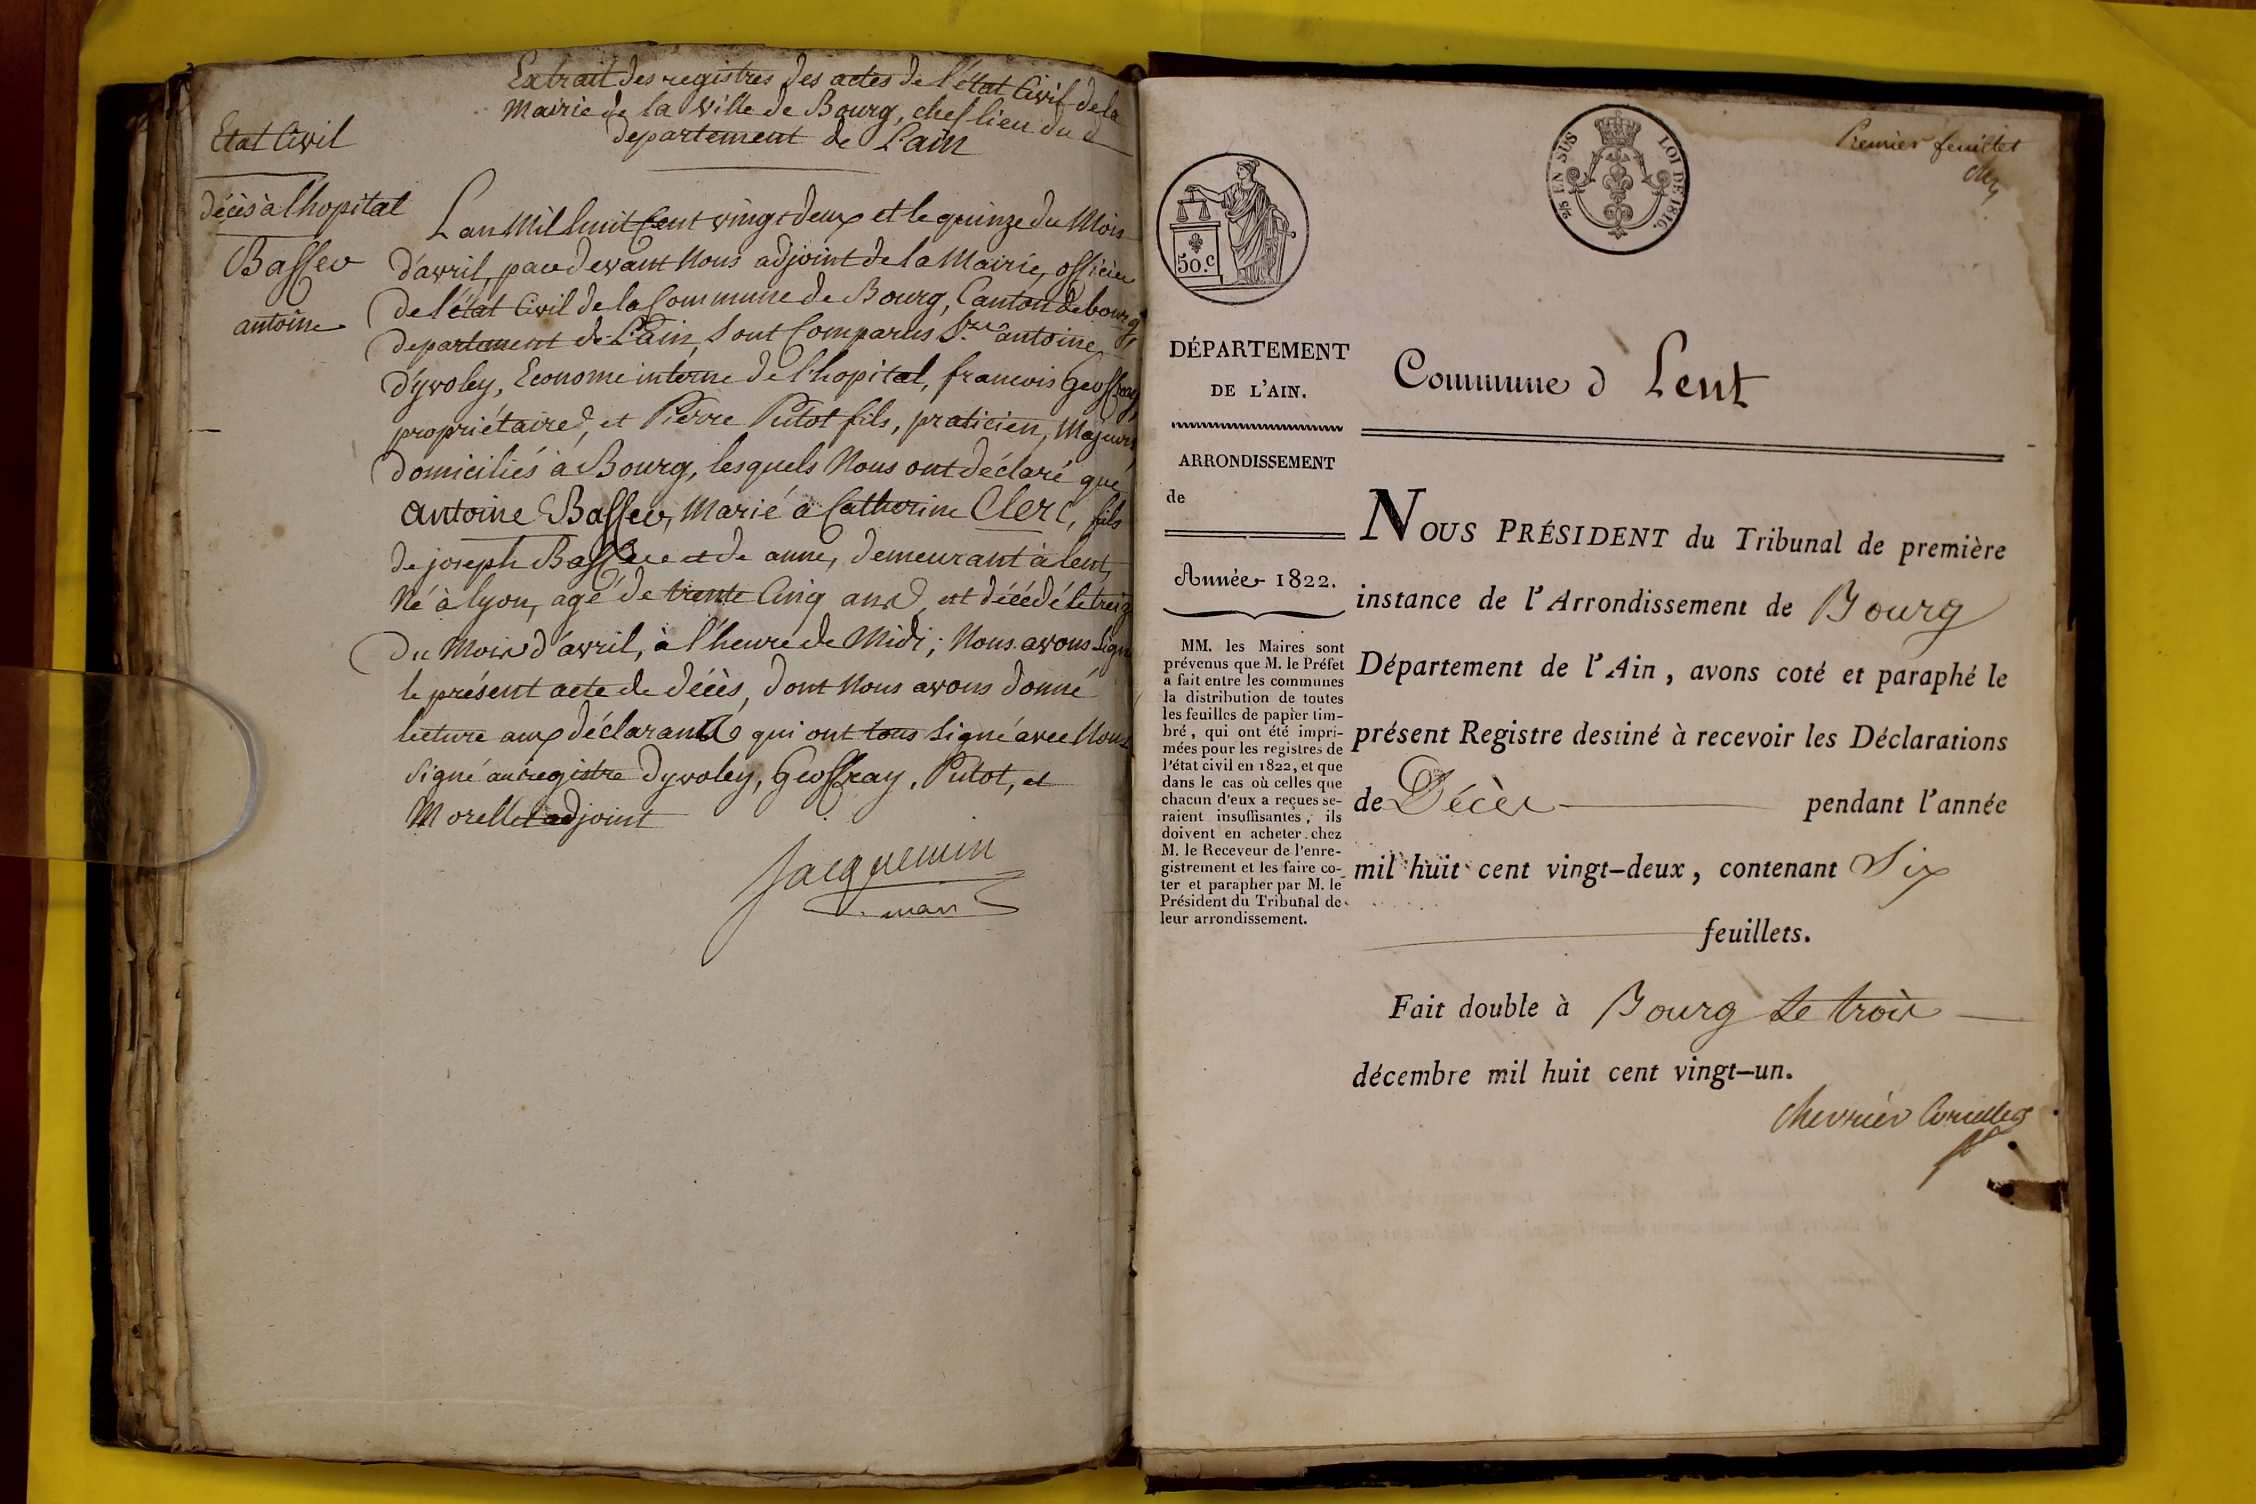 Extrait des registres des actes de l'état Civil de la
Mairie de la Ville de Bourg, chef lieu du d
departement de L'ain
Etat Civil
décès à lhopital
Basser
antoine
L'an Mil huit Cent vingt deux et le quinze du Mois
d'avril, par devant Nous adjoint de la Mairie, officier
de l'état Civil de la Commune de Bourg, Canton de bourg
departement de L'ain, sont Comparus S.rs antoine
d'yvoley, Econome interne de l'hopital, francois Geoffray,
propriétaire, et Pierre Putot fils, praticien, Majeurs
domiciliés à Bourg, lesquels Nous ont déclaré que
antoine Basser, Marié à Catherine Clerc, fils
de joseph Basser et de anne, demeurant à lent,
Né à lyon, agé de trente Cinq ans est décédé le treize
du Mois d'avril, à l'heure de Midi; Nous avons signé
le présent acte de décès, dont Nous avons donné
lecture aux déclarants qui ont tous signé avec Nous
signé au registre Dyvoley, Geoffray, Putot, et
Morellet adjoint
Jacquemin
maire
Premier feuillet
2/5 EN SUS LOI DE 1816.
50.c
DÉPARTEMENT
DE L'AIN.
ARRONDISSEMENT
de
Année 1822.
MM. les Maires sont
prévenus que M. le Préfet
a fait entre les communes
la distribution de toutes
les feuilles de papier tim-
bré, qui ont été impri-
mées pour les registres de
l'état civil en 1822, et que
dans le cas où celles que
chacun d'eux a reçues se-
raient insuffisantes, ils
doivent en acheter chez
M. le Receveur de l'enre-
gistrement et les faire co-
ter et parapher par M. le
Président du Tribunal de
leur arrondissement.
Commune d Lent
NOUS PRÉSIDENT du Tribunal de première
instance de l'Arrondissement de Bourg
Département de l'Ain, avons coté et paraphé le
présent Registre destiné à recevoir les Déclarations
de Décès pendant l'année
mil huit cent vingt-deux, contenant Six
feuillets.
Fait double à Bourg Le trois
décembre mil huit cent vingt-un.
Chevrier Corcelles